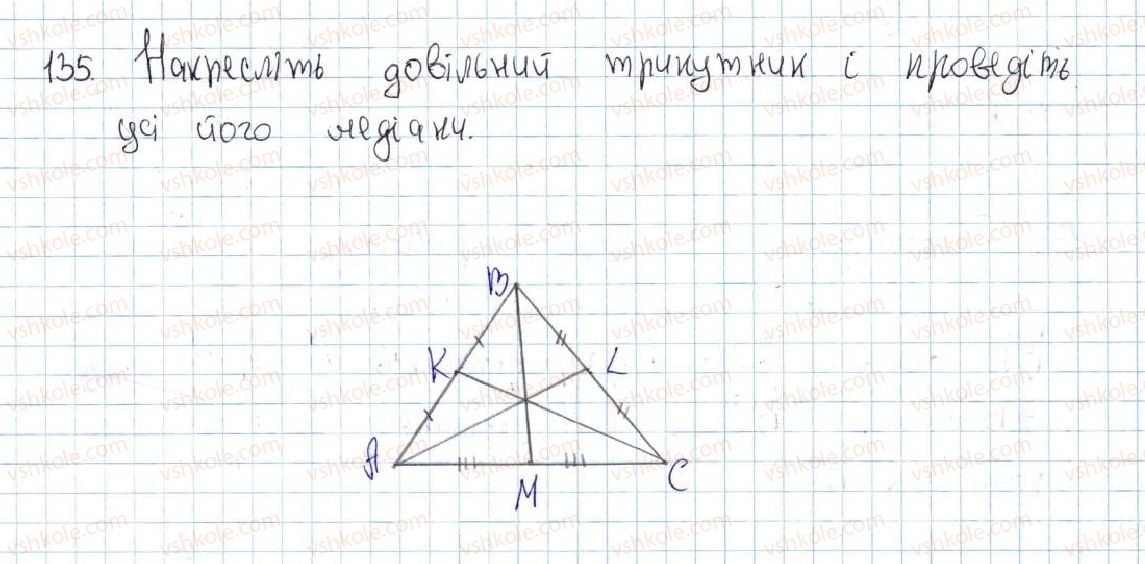 135. Накресліть довільний трикутник і проведіть
усі його медіани.
B
K
L
A
M
C